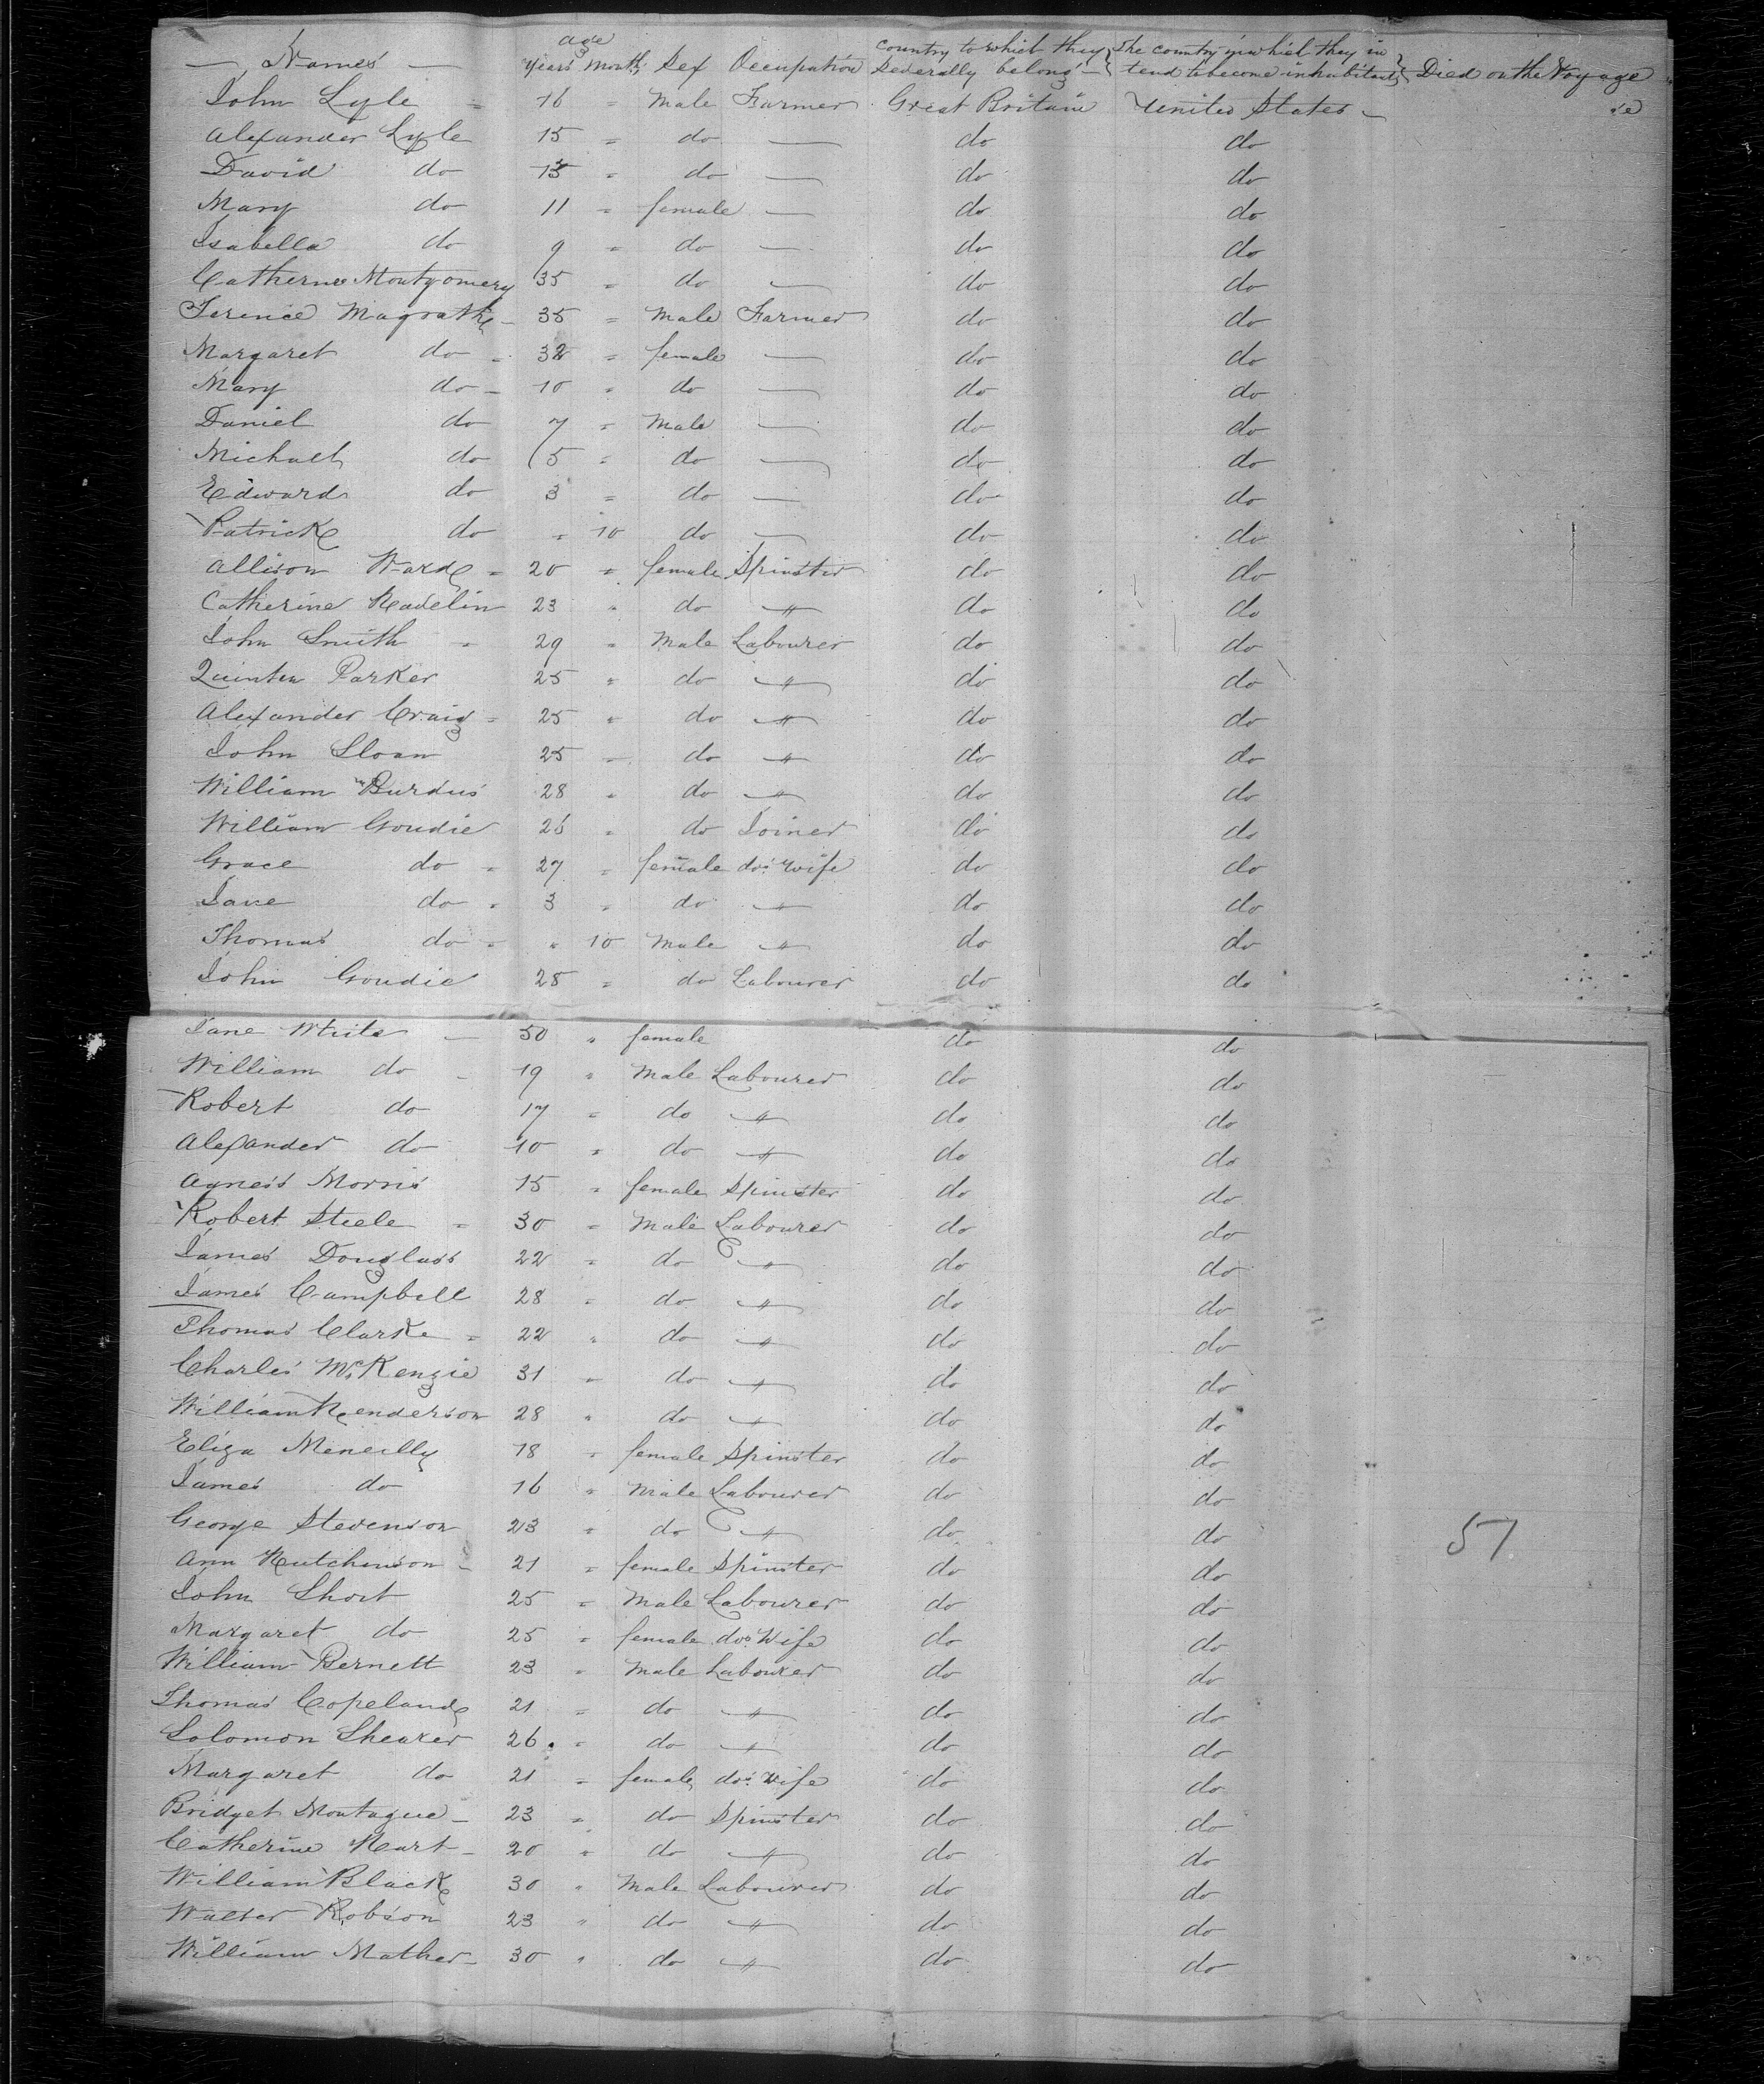 — Names — age Years Months Sex Occupation Country to which they severally belong — The country in which they intend to become inhabitants Died on the Voyage
John Lyle = 16 = Male Farmer Great Britain United States —
Alexander Lyle 15 = do — do do
David do 13 = do — do do
Mary do 11 = female — do do
Isabella do 9 = do — do do
Catherine Montgomery 35 = do — do do
Terence Magrath — 35 = Male Farmer do do
Margaret do = 32 = female — do do
Mary do — 10 = do — do do
Daniel do 7 = Male — do do
Michael do 5 = do — do do
Edward do 3 = do — do do
Patrick do = 10 do — do do
Allison Ward = 20 = female Spinster do do
Catherine 23 " do " do do
John Smith = 29 = Male Labourer do do
Quinten Parker 25 " do " do do
Alexander Craig = 25 " do " do do
John Sloan 25 = do " do do
William Burdus 28 = do " do do
William Goudie 26 = do Joiner do do
Grace do = 27 = female dos. wife do do
Jane do = 3 = do " do do
Thomas do = " 10 Male " do do
John Goudie 28 = do Labourer do do
Jane White — 50 " female do do
William do — 19 " Male Labourer do do
Robert do 17 = do " do do
Alexander do 10 = do " do do
Agness Morris 15 = female Spinster do do
Robert Steele = 30 = Male Labourer do do
James Douglass 22 = do " do do
James Campbell 28 = do " do do
Thomas Clarke = 22 " do " do do
Charles McKenzie 31 = do " do do
William Henderson 28 " do " do do
Eliza Meneilly 18 = female Spinster do do
James do 16 " Male Labourer do do
George Stevenson 23 = do " do do
57
Ann Hutchinson — 21 = female Spinster do do
John Short 25 = Male Labourer do do
Margaret do 25 = female dos. Wife do do
William Bernett 23 = Male Labourer do do
Thomas Copeland 21 = do " do do
Solomon Shearer 26 = do " do do
Margaret do 21 = female dos. Wife do do
Bridget Montague — 23 = do Spinster do do
Catherine Hart — 20 = do " do do
William Black 30 " Male Labourer do do
Walter Robson 23 " do " do do
William Mather — 30 " do " do do